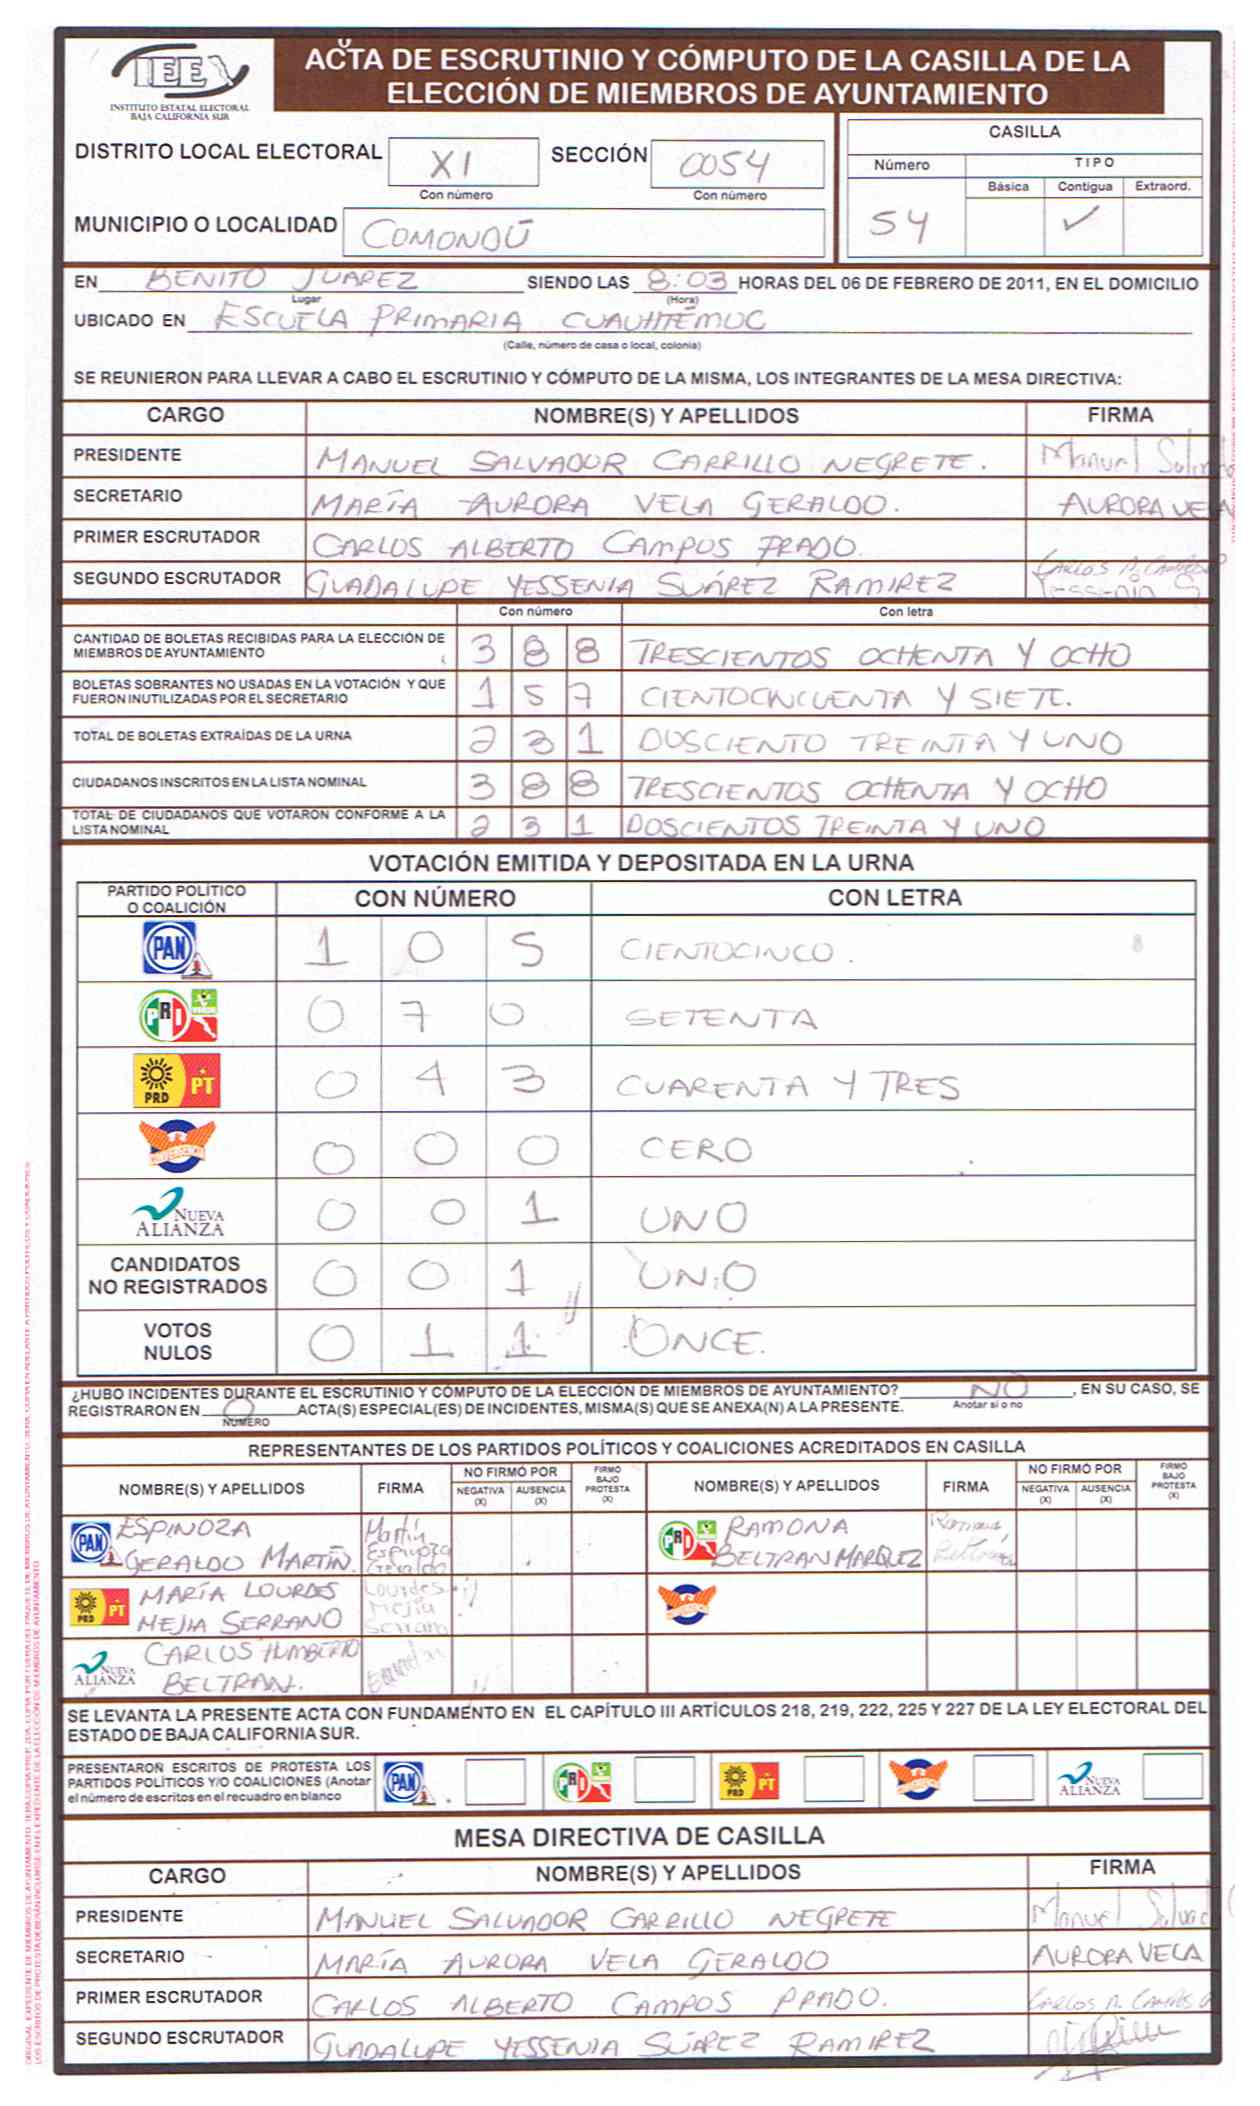 IEEX
INSTITUTO ESTATAL ELECTORAL
BAJA CALIFORNIA SUR
ACTA DE ESCRUTINIO Y CÓMPUTO DE LA CASILLA DE LA
ELECCIÓN DE MIEMBROS DE AYUNTAMIENTO
DISTRITO LOCAL ELECTORAL XI SECCIÓN 0054
Con número Con número
MUNICIPIO O LOCALIDAD COMONDÚ
CASILLA
Número TIPO
Básica Contigua Extraord.
54 ✓
EN BENITO JUAREZ SIENDO LAS 8:03 HORAS DEL 06 DE FEBRERO DE 2011, EN EL DOMICILIO
Lugar (Hora)
UBICADO EN ESCUELA PRIMARIA CUAUHTÉMOC
(Calle, número de casa o local, colonia)
SE REUNIERON PARA LLEVAR A CABO EL ESCRUTINIO Y CÓMPUTO DE LA MISMA, LOS INTEGRANTES DE LA MESA DIRECTIVA:
CARGO NOMBRE(S) Y APELLIDOS FIRMA
PRESIDENTE MANUEL SALVADOR CARRILLO NEGRETE. Manuel
SECRETARIO MARÍA AURORA VELA GERALDO. AURORA VELA
PRIMER ESCRUTADOR CARLOS ALBERTO CAMPOS PRADO.
SEGUNDO ESCRUTADOR GUADALUPE YESSENIA SUÁREZ RAMIREZ
Con número Con letra
CANTIDAD DE BOLETAS RECIBIDAS PARA LA ELECCIÓN DE
MIEMBROS DE AYUNTAMIENTO 3 8 8 TRESCIENTOS OCHENTA Y OCHO
BOLETAS SOBRANTES NO USADAS EN LA VOTACIÓN Y QUE
FUERON INUTILIZADAS POR EL SECRETARIO 1 5 7 CIENTOCINCUENTA Y SIETE.
TOTAL DE BOLETAS EXTRAÍDAS DE LA URNA 2 3 1 DOSCIENTO TREINTA Y UNO
CIUDADANOS INSCRITOS EN LA LISTA NOMINAL 3 8 8 TRESCIENTOS OCHENTA Y OCHO
TOTAL DE CIUDADANOS QUE VOTARON CONFORME A LA
LISTA NOMINAL 2 3 1 DOSCIENTOS TREINTA Y UNO
VOTACIÓN EMITIDA Y DEPOSITADA EN LA URNA
PARTIDO POLÍTICO
O COALICIÓN CON NÚMERO CON LETRA
PAN 1 0 5 CIENTOCINCO. 8
PRI VERDE 0 7 0 SETENTA
PRD PT 0 4 3 CUARENTA Y TRES
CONVERGENCIA 0 0 0 CERO
NUEVA
ALIANZA 0 0 1 UNO
CANDIDATOS
NO REGISTRADOS 0 0 1 UNO
VOTOS
NULOS 0 1 1 ONCE.
¿HUBO INCIDENTES DURANTE EL ESCRUTINIO Y CÓMPUTO DE LA ELECCIÓN DE MIEMBROS DE AYUNTAMIENTO? NO, EN SU CASO, SE
Anotar si o no
REGISTRARON EN 0 ACTA(S) ESPECIAL(ES) DE INCIDENTES, MISMA(S) QUE SE ANEXA(N) A LA PRESENTE.
NÚMERO
REPRESENTANTES DE LOS PARTIDOS POLÍTICOS Y COALICIONES ACREDITADOS EN CASILLA
NOMBRE(S) Y APELLIDOS FIRMA NO FIRMÓ POR NEGATIVA (X) AUSENCIA (X) FIRMÓ BAJO PROTESTA (X) NOMBRE(S) Y APELLIDOS FIRMA NO FIRMÓ POR NEGATIVA (X) AUSENCIA (X) FIRMÓ BAJO PROTESTA (X)
PAN ESPINOZA
GERALDO MARTÍN. Martín Espinoza Geraldo
PRI RAMONA
BELTRAN MARQUEZ Ramona Beltran
PRD PT MARÍA LOURDES
MEJIA SERRANO Lourdes Mejia Serrano
CONVERGENCIA
NUEVA ALIANZA CARLOS HUMBERTO
BELTRAN.
SE LEVANTA LA PRESENTE ACTA CON FUNDAMENTO EN EL CAPÍTULO III ARTÍCULOS 218, 219, 222, 225 Y 227 DE LA LEY ELECTORAL DEL
ESTADO DE BAJA CALIFORNIA SUR.
PRESENTARON ESCRITOS DE PROTESTA LOS
PARTIDOS POLÍTICOS Y/O COALICIONES (Anotar
el número de escritos en el recuadro en blanco
PAN PRI PRD PT CONVERGENCIA NUEVA ALIANZA
MESA DIRECTIVA DE CASILLA
CARGO NOMBRE(S) Y APELLIDOS FIRMA
PRESIDENTE MANUEL SALVADOR CARRILLO NEGRETE Manuel Salvad
SECRETARIO MARÍA AURORA VELA GERALDO AURORA VELA
PRIMER ESCRUTADOR CARLOS ALBERTO CAMPOS PRADO. CARLOS A. CAMPOS
SEGUNDO ESCRUTADOR GUADALUPE YESSENIA SUÁREZ RAMIREZ